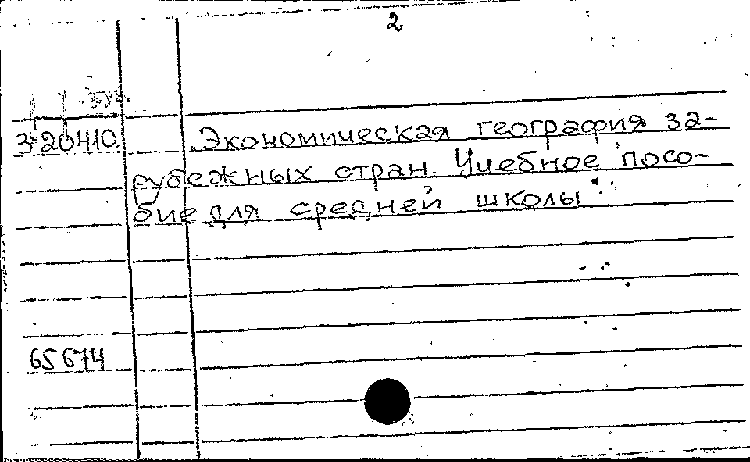 2
3-20410. Экономическая география за-
рубежных стран. Учебное посо-
бие для средней школы.
65674